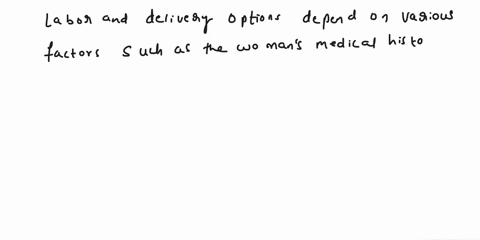 Labor and delivery options depend on various
factors such as the woman's medical histo